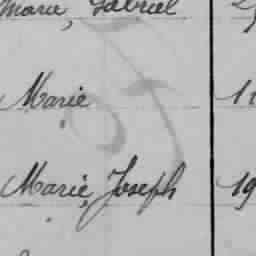 Marie, Gabriel
Marie
Marie, Joseph 19